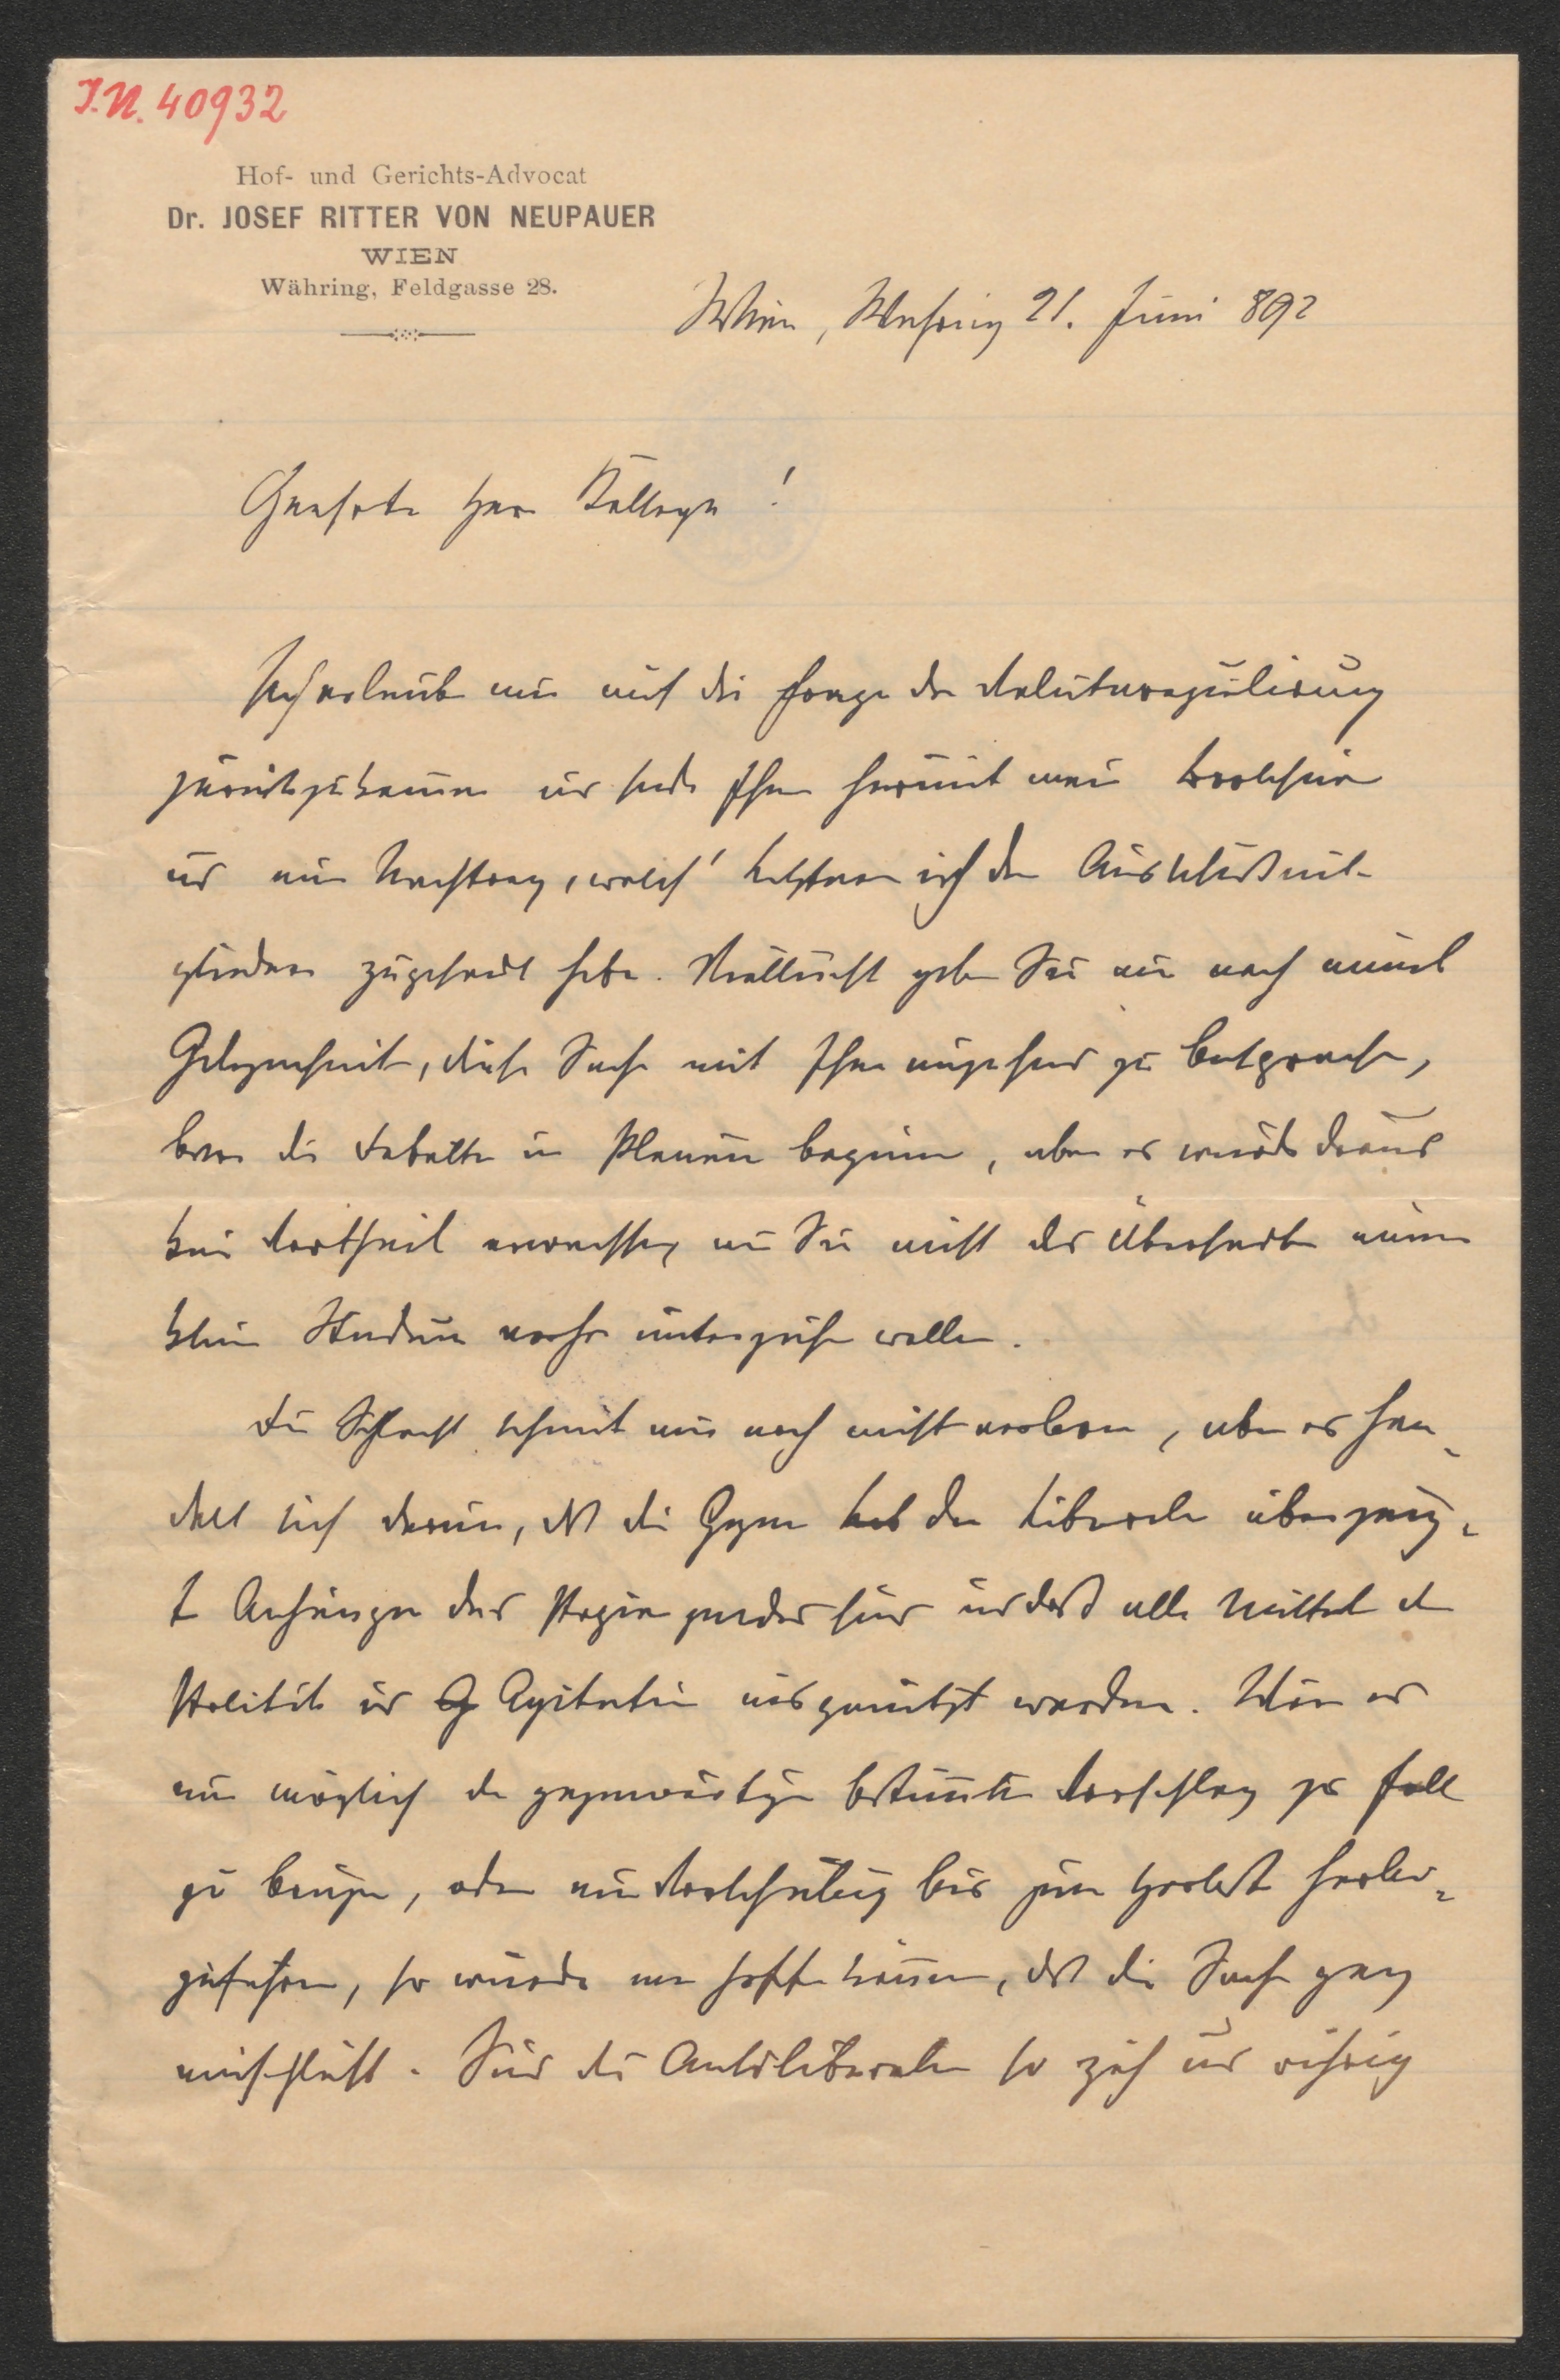 J.N. 40932
Hof- und Gerichts-Advocat
Dr. JOSEF RITTER VON NEUPAUER
WIEN
Währing, Feldgasse 28.
Wien, Währing 21. Juni 892
Geehrter Herr Kollege!
Ich erlaube mir auf die Frage der Valutaregulirung
zurückzukommen und sende Ihnen hiermit meine Brochüre
und einen Nachtrag, welch' letzteren ich den Ausschußmit-
gliedern zugesendet habe. Vielleicht geben Sie mir noch einmal
Gelegenheit, diese Sache mit Ihnen eingehend zu besprechen,
bevor die Debatten im Plenum beginnen, aber es würde daraus
kein Vortheil erwachsen, wenn Sie nicht das Übersendete einem
kleinen Studium vorher unterziehen wollen.
Die Schlacht scheint mir noch nicht verloren, aber es han-
delt sich darum, daß die Gegner der Liberalen überzeug-
te Anhänger des Papiergeldes sind und daß alle Mittel der
Politik und Agitation ausgenützt werden. Wäre es
nun möglich den gegenwärtigen bestimmten Vorschlag zu Fall
zu bringen, oder eine Verschiebung bis zum Herbst herbei-
zuführen, so würde man hoffen können, daß die Sache ganz
einschläft. Sind die Antiliberalen so zäh und rührig